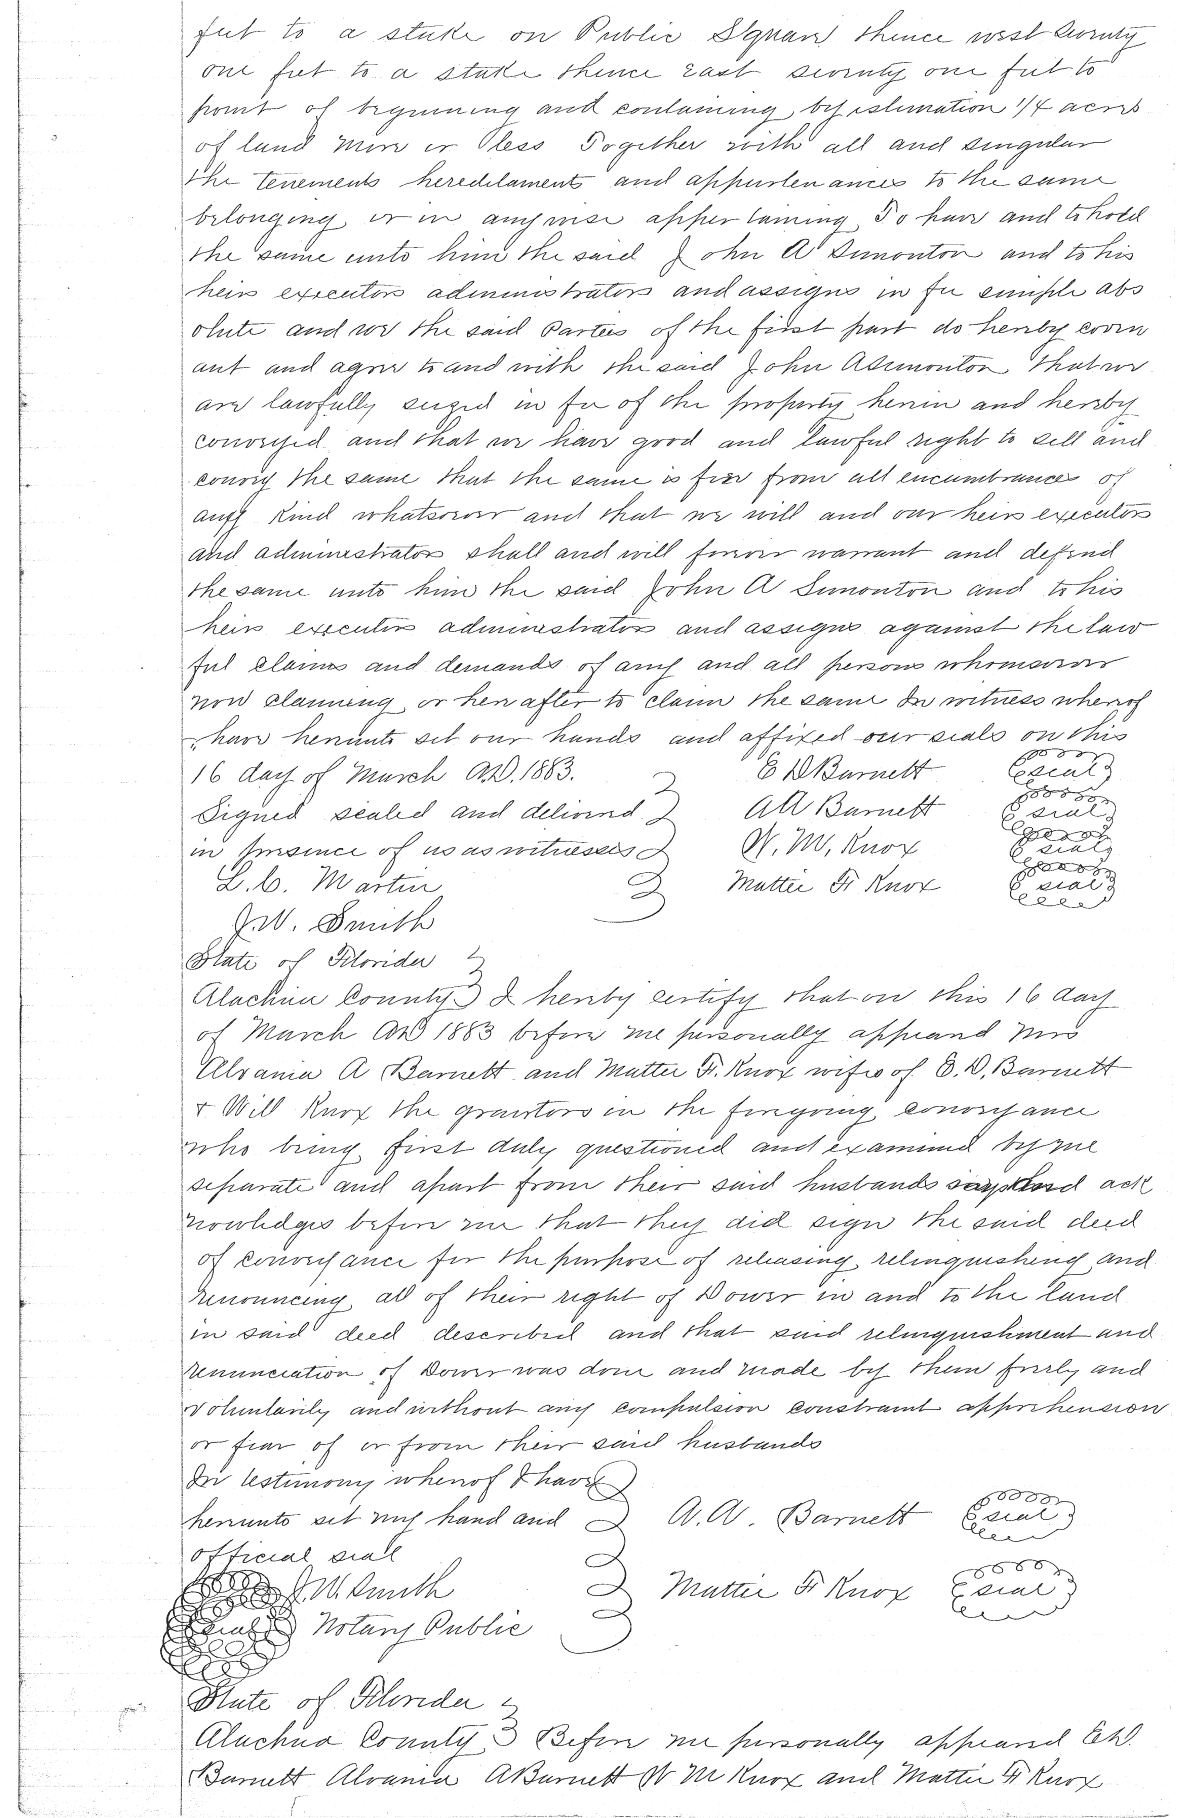 feet to a stake on Public Square thence west seventy
one feet to a stake thence east seventy one feet to
point of beginning and containing by estimation 1/4 acres
of land more or less Together with all and singular
the tenements heredilaments and appurtenances to the same
belonging or in anywise appertaining To have and to hold
the same unto him the said John A Simonton and to his
heirs executors administrators and assigns in fee simple abs
olute and we the said Parties of the first part do hereby coven
ant and agree to and with the said John A Simonton that we
are lawfully seized in fee of the property herein and hereby
conveyed and that we have good and lawful right to sell and
convey the same that the same is free from all encumbrances of
any kind whatsoever and that we will and our heirs executors
and administrators shall and will forever warrant and defend
the same unto him the said John A Simonton and to his
heirs executors administrators and assigns against the law
ful claims and demands of any and all persons whomsoever
now claiming or hereafter to claim the same In witness whereof
have hereunto set our hands and affixed our seals on this
16 day of March A.D. 1883. E D Barnett seal
Signed sealed and delivered AA Barnett seal
in presence of us as witnesses W. M. Knox seal
L. C. Martin Mattie F. Knox seal
J.W. Smith
State of Florida
Alachua County I hereby certify that on this 16 day
of March AD 1883 before me personally appeared Mrs
Alvania A Barnett and Mattie F. Knox wifes of E. D. Barnett
+ Will Knox the grantors in the foregoing conveyance
who being first duly questioned and examined by me
separate and apart from their said husbands ack
nowledges before me that they did sign the said deed
of conveyance for the purpose of releasing relinquishing and
renouncing all of their right of Dower in and to the land
in said deed described and that said relinquishment and
renunciation of Dower was done and made by them freely and
voluntarily and without any compulsion constraint apprehension
or fear of or from their said husbands
In testimony whereof I have
hereunto set my hand and A. A. Barnett seal
official seal
J. W. Smith Mattie F. Knox seal
seal Notary Public
State of Florida
Alachua County Before me personally appeared E D.
Barnett Alvania A Barnett W M Knox and Mattie F. Knox